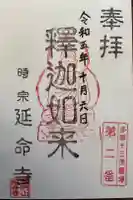 奉拝
第二番
令和五年十月六日
釋迦如来
時宗 延命寺